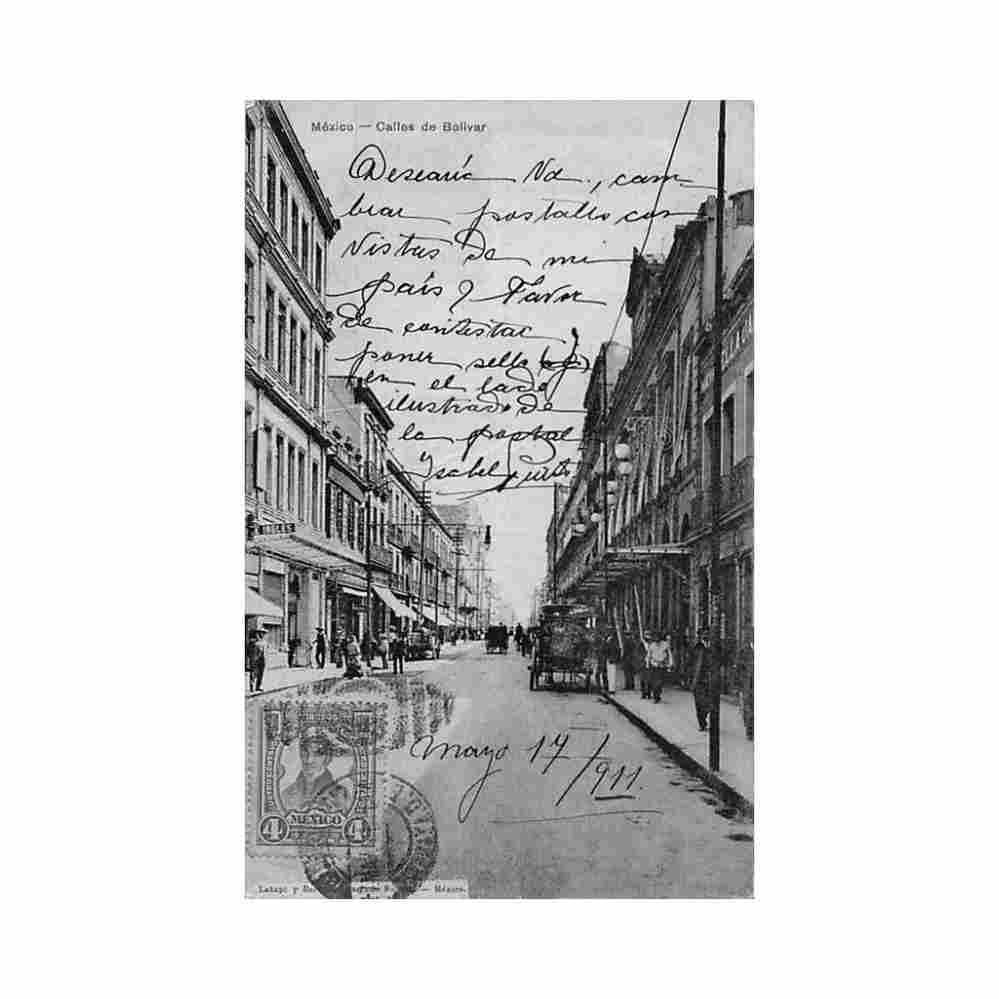 México — Calles de Bolivar
Desearía Vd., cam
biar postalls con
Vistas de mi
país y Favor
de contestar y
poner sello
en el lado
ilustrado de
la postal
Ysabel
INGLÉS
Mayo 17/911.
MEXICO
4 4
Latapi y — México.